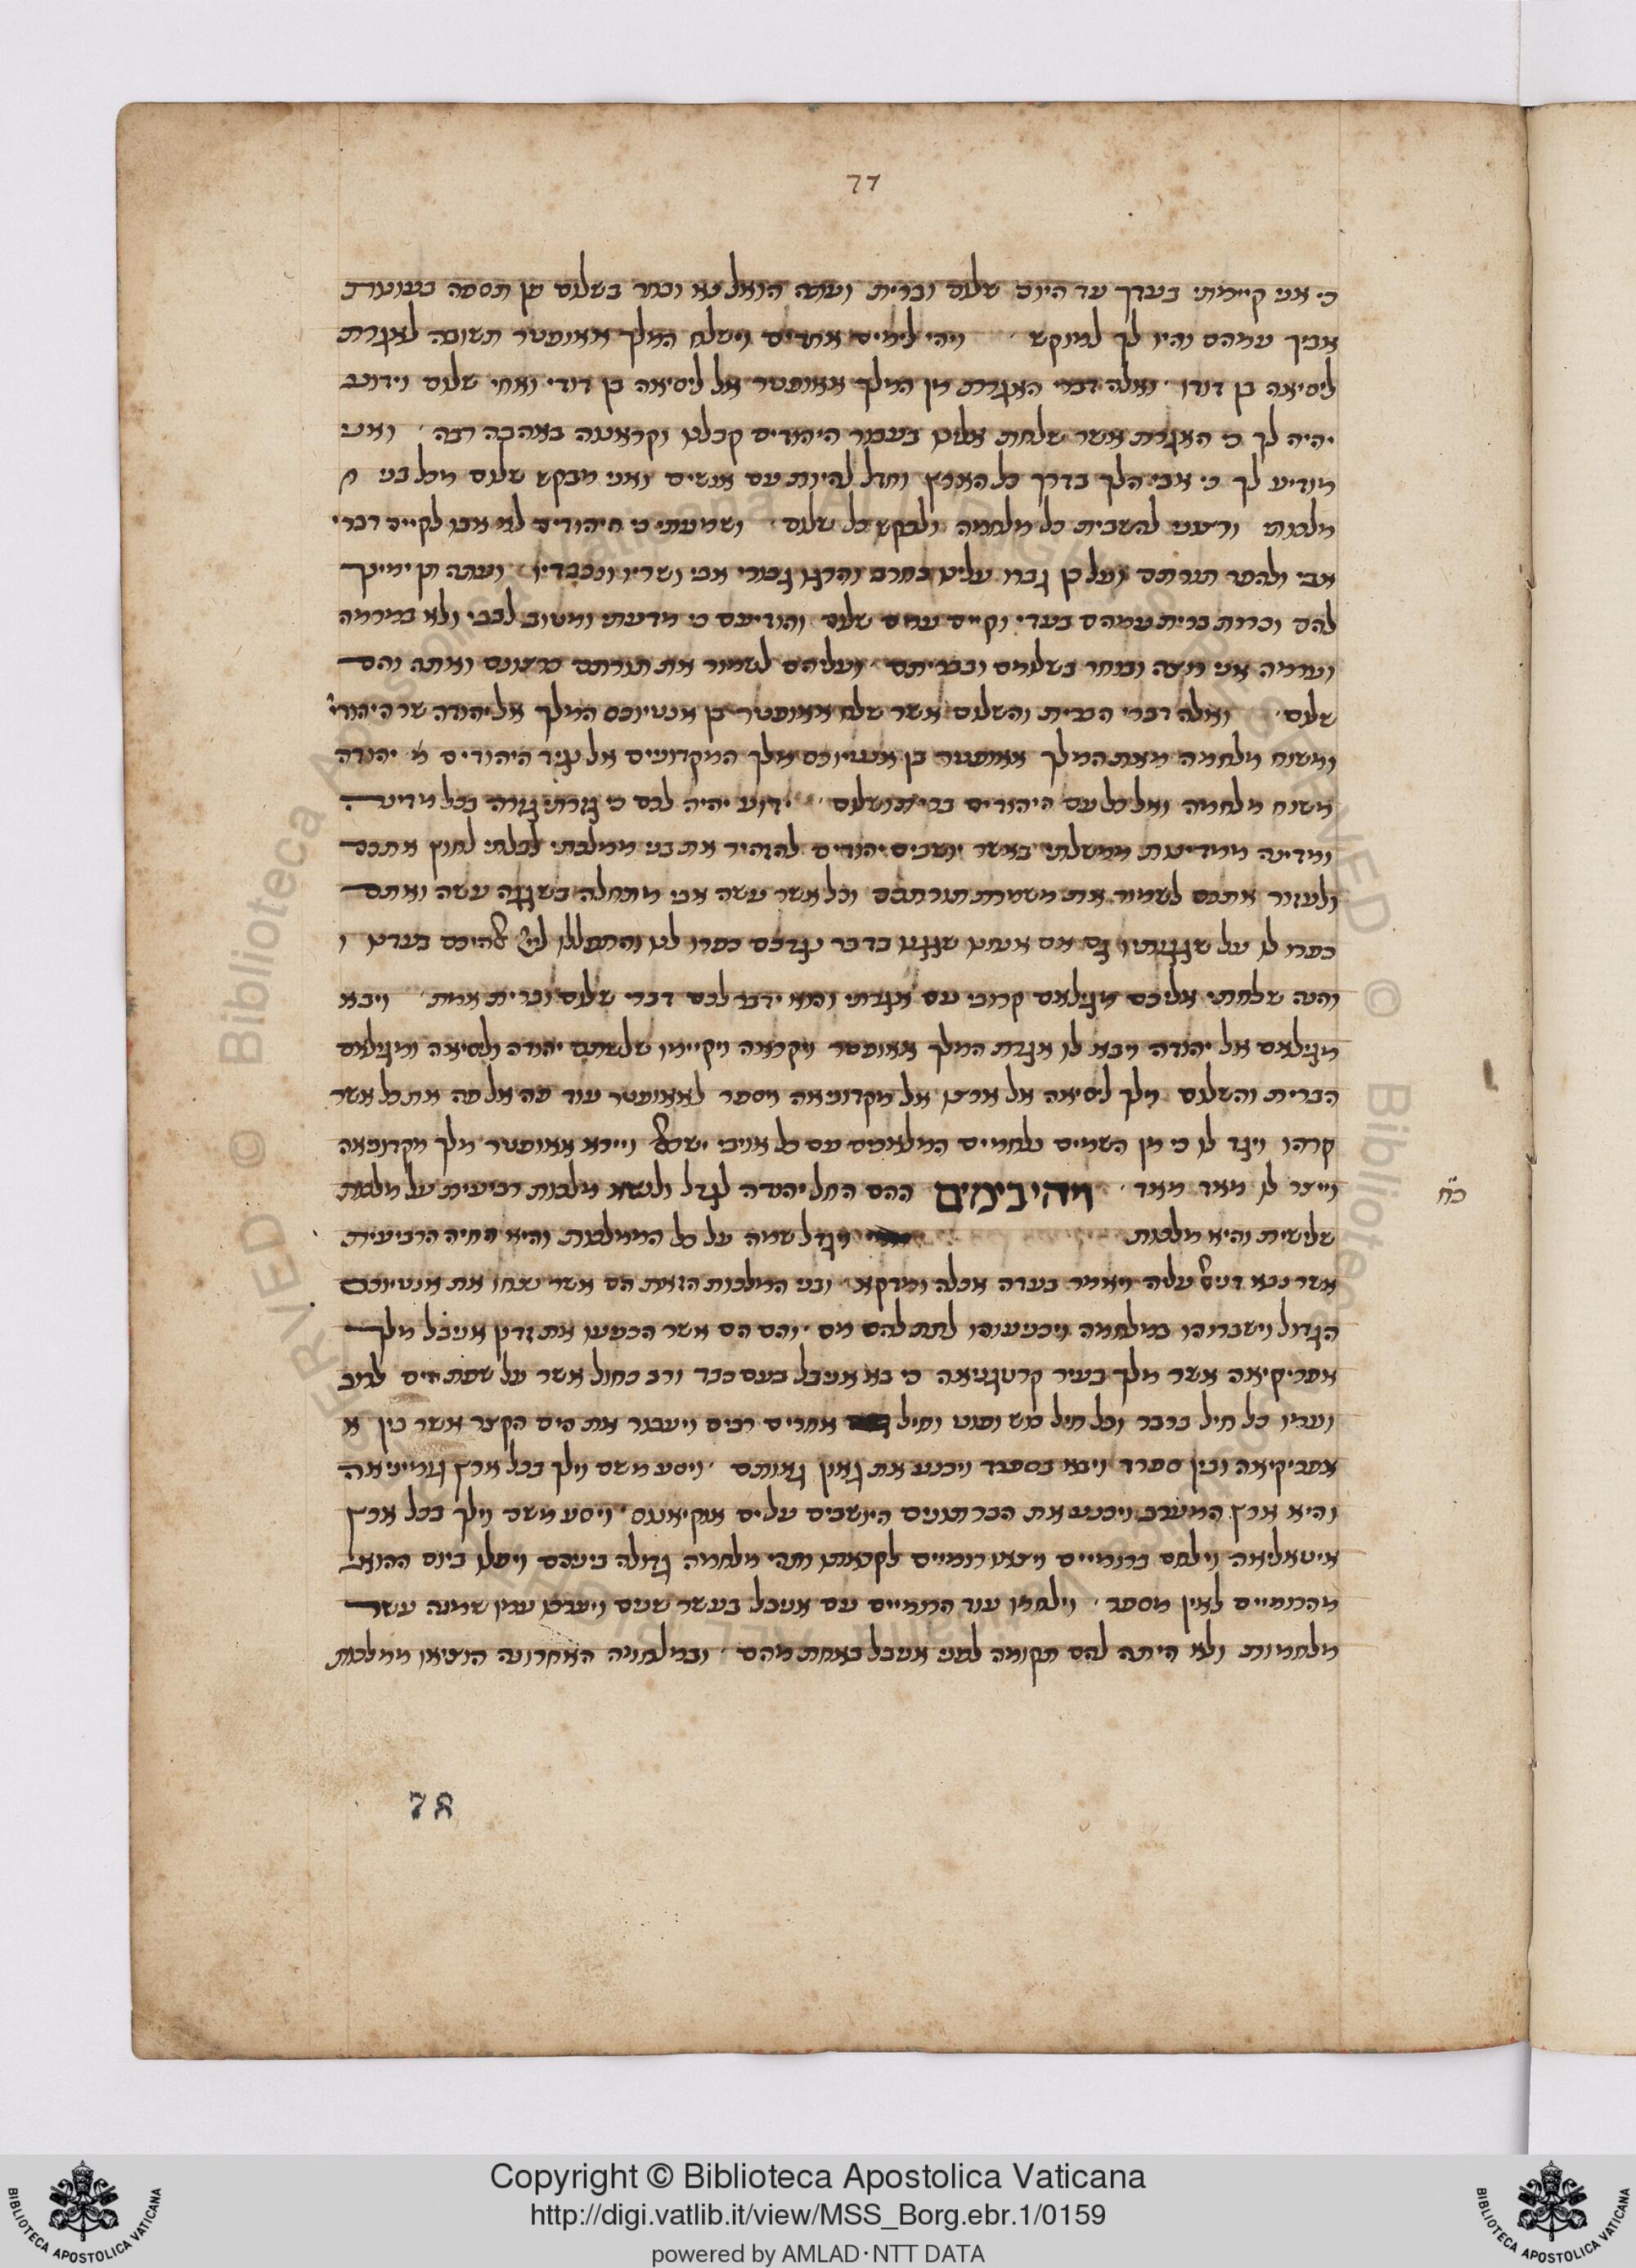 77
כי אני קיימתי בעדך עד היום שלום וברית ועתה הואל נא ובחר בשלום פן תספה בעונות
אביך עמהם והיו לך למוקש ויהי לימים אחדים וישלח המלך אאופטר תשובה לאגרת
ליסיאה בן דודו ואלה דברי האגרת מן המלך אאופטר אל ליסיאה בן דודי ואחי שלום וידוע
יהיה לך כי האגרת אשר שלחת אלינו בעבור היהודים קבלנו וקראנוה באהבה רבה ואני
מודיע לך כי אבי הלך בדרך כל הארץ וחדל להיות עם אנשים ואני מבקש שלום מכל בני מ
מלכותי ורצוני להשבית כל מלחמה ולבקש כל שלום ושמעתי כי היהודים לא אבו לקיים דברי
אבי ולהפר תורתם ועל כן גברו עלינו בחרב והרגו גבורי אבי ושריו ונכבדיו ועתה תן ימינך
להם וכרות ברית עמהם בעדי וקיים עמם שלום והודיעם כי מדעתי ומטוב לבבי ולא במרמה
וערמה אני רוצה ובוחר בשלומם ובבריתם ועליהם לשמור את תורתם כרצונם ואתה והם
שלום ואלה דברי הברית והשלום אשר שלח אאופטר בן אנטיוכס המלך אל יהודה שר היהודי'
ומשוח מלחמה מאת המלך אאופטר בן אנטיוכס מלך המקדונים אל נגיד היהודים מ יהודה
משוח מלחמה ואל כל עם היהודים שלום ידוע יהיה לכם כי גזרתי גזרה בכל מדינה
ומדינה ממדינות ממשלתי באשר יושבים יהודים להזהיר את בני ממלכתי לבלתי לחוץ אתכם
ולעזור אתכם לשמור את משמרת תורתכם וכל אשר עשה אבי מתחלה בשגגה עשה ואתם
כפרו לו על שגגתו גם אם אנחנו שגגנו בדבר נגדכם כפרו לנו והתפללו אלהיכם בעדנו ו
והנה שלחתי אליכם מגילאס קרובי עם אגרתי והוא ידבר לכם דברי שלום וברית אמת ויבא
מגילאס אל יהודה ויבא לו אגרת המלך אאופטר ויקראה ויקיימו שלשתם יהודה וליסיאה ומגילאס
הברית והשלום וילך ליסיאה אל ארצו אל מקדוניאה ויספר לאאופטר עוד פה אל פה את כל אשר
קרהו ויגד לו כי מן השמים נלחמים המלאכים עם כל אויבי ישראל ויירא אאופטר מלך מקדוניאה
וייצר לו מאד מאד ויהי בימים ההם החל יהודה לגדל ולנשא מלכות רביעית על מלכות
כ״ח
שלישית והיא מלכות ויגדל שמה על כל הממלכות והיא החיה הרביעית
אשר נבא דניאל עליה ויאמר בעדה אכלה ומדקא ובני המלכות הזאת הם אשר נצחו את אנטיוכס
הגדול וישברוהו במלחמה ויכניעוהו לתת להם מס והם הם אשר הכניעו את זדון אניבל מלך
אפריקיאה אשר מלך בעיר קרטגניאה כי בא אניבל בעם כבד ורב כחול אשר על שפת הים לרוב
ועמו כל חיל ברבר וכל חיל כוש ופוט וחיל אחרים רבים ויעבור את הים הקצר אשר בין א
אפריקיאה ובין ספרד ויבא בספרד ויכנע את גאון גאותם ויסע משם וילך בכל ארץ גרמניאה
והיא ארץ המערב ויכנע את הברתנים היושבים על ים אוקיאנוס ויסע משם וילך בכל ארץ
איטאליאה וילחם ברומיים ויצאו רומיים לקראתו ותהי מלחמה גדולה ביניהם ויפלו ביום ההוא
מהרומיים לאין מספר וילחמו עוד הרומיים עם אניבל בעשר שנים ויערכו עמו שמנה עשר
מלחמות ולא היתה להם תקומה לפני אניבל באחת מהם ובמלחמה האחרונה הוציאו ממלכות
78
Copyright © Biblioteca Apostolica Vaticana
http://digi.vatlib.it/view/MSS_Borg.ebr.1/0159
powered by AMLAD·NTT DATA